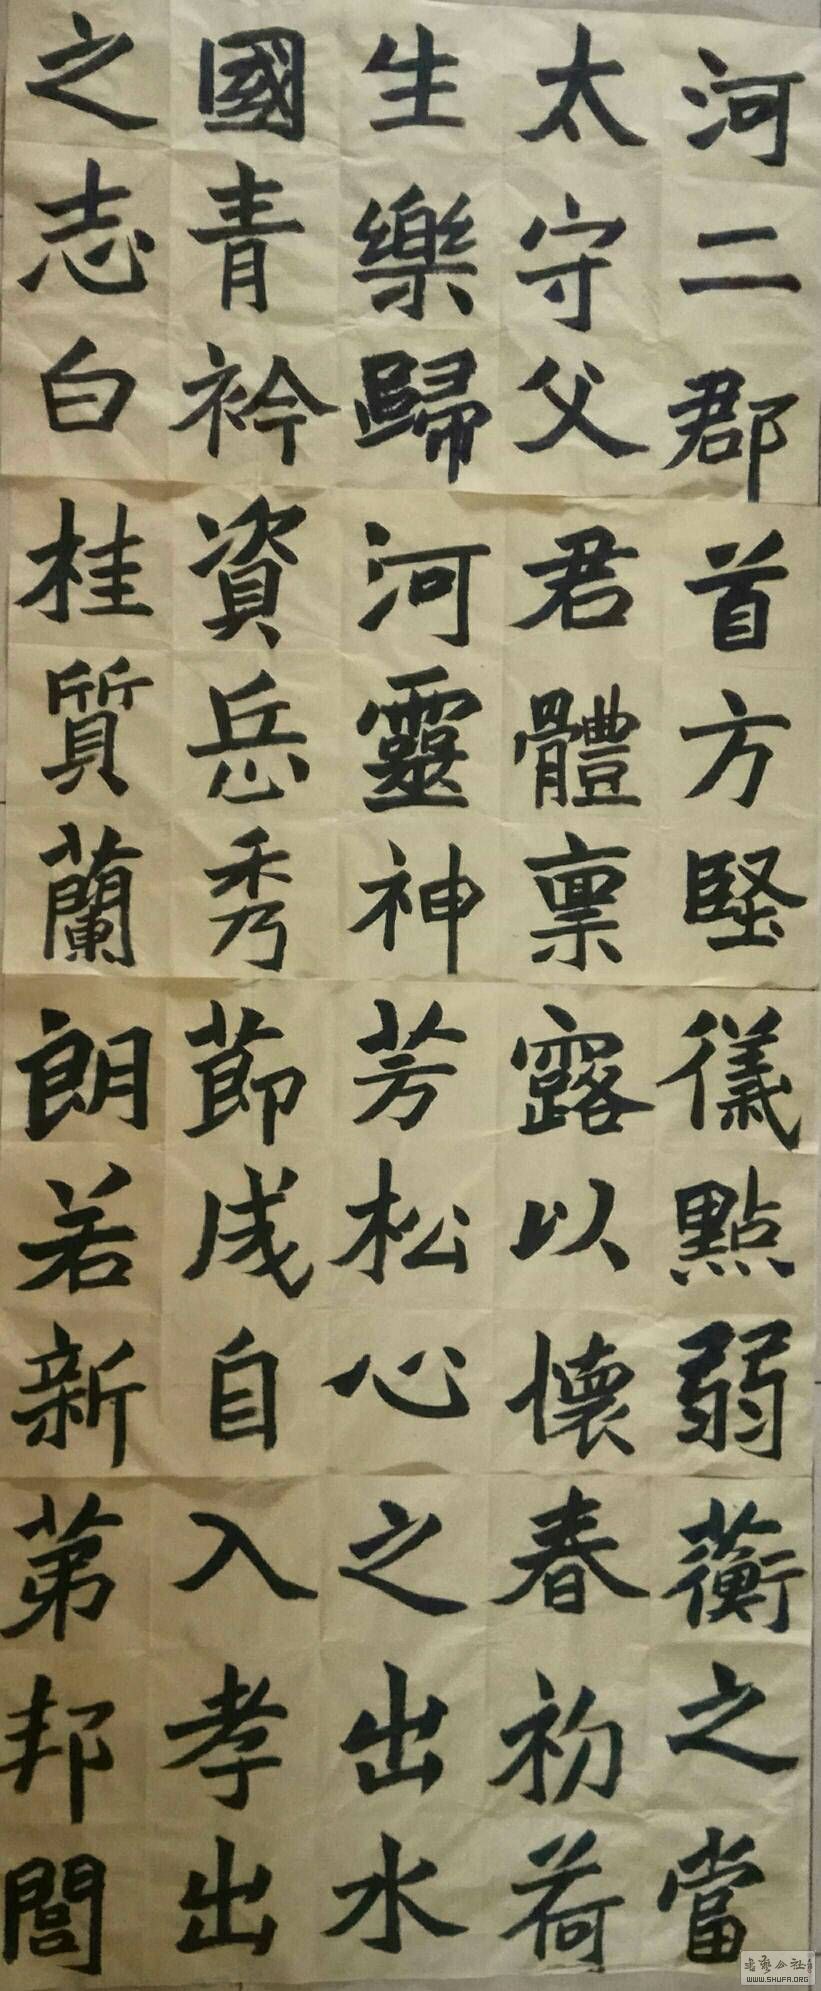 河二郡
太守父
生樂歸
國青衿
之志白
首方堅
君體稟
河靈神
資岳秀
桂質蘭
儀點弱
露以懷
芳松心
節成自
朗若新
蘅之當
春初荷
之出水
入孝出
第邦閭
WWW.SHUFA.ORG